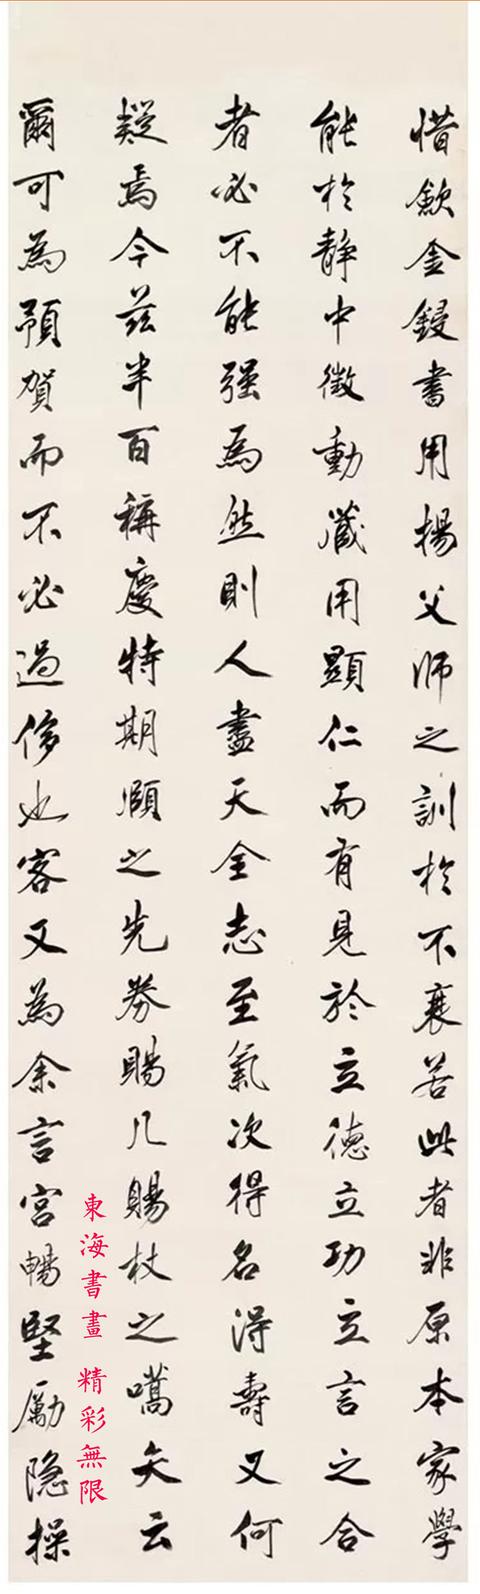 惜飲金鋟書用揚父師之訓於不衰若此者非原本家學
能於静中徵動藏用顯仁而有見於立德立功立言之合
者必不能强為然則人盡天全志至氣次得名得壽又何
疑焉今茲半百稱慶特期頤之先券賜几賜杖之嚆矢云
爾可為預賀而不必過侈也客又為余言宮暢堅勵隐操
東海書畫 精彩無限